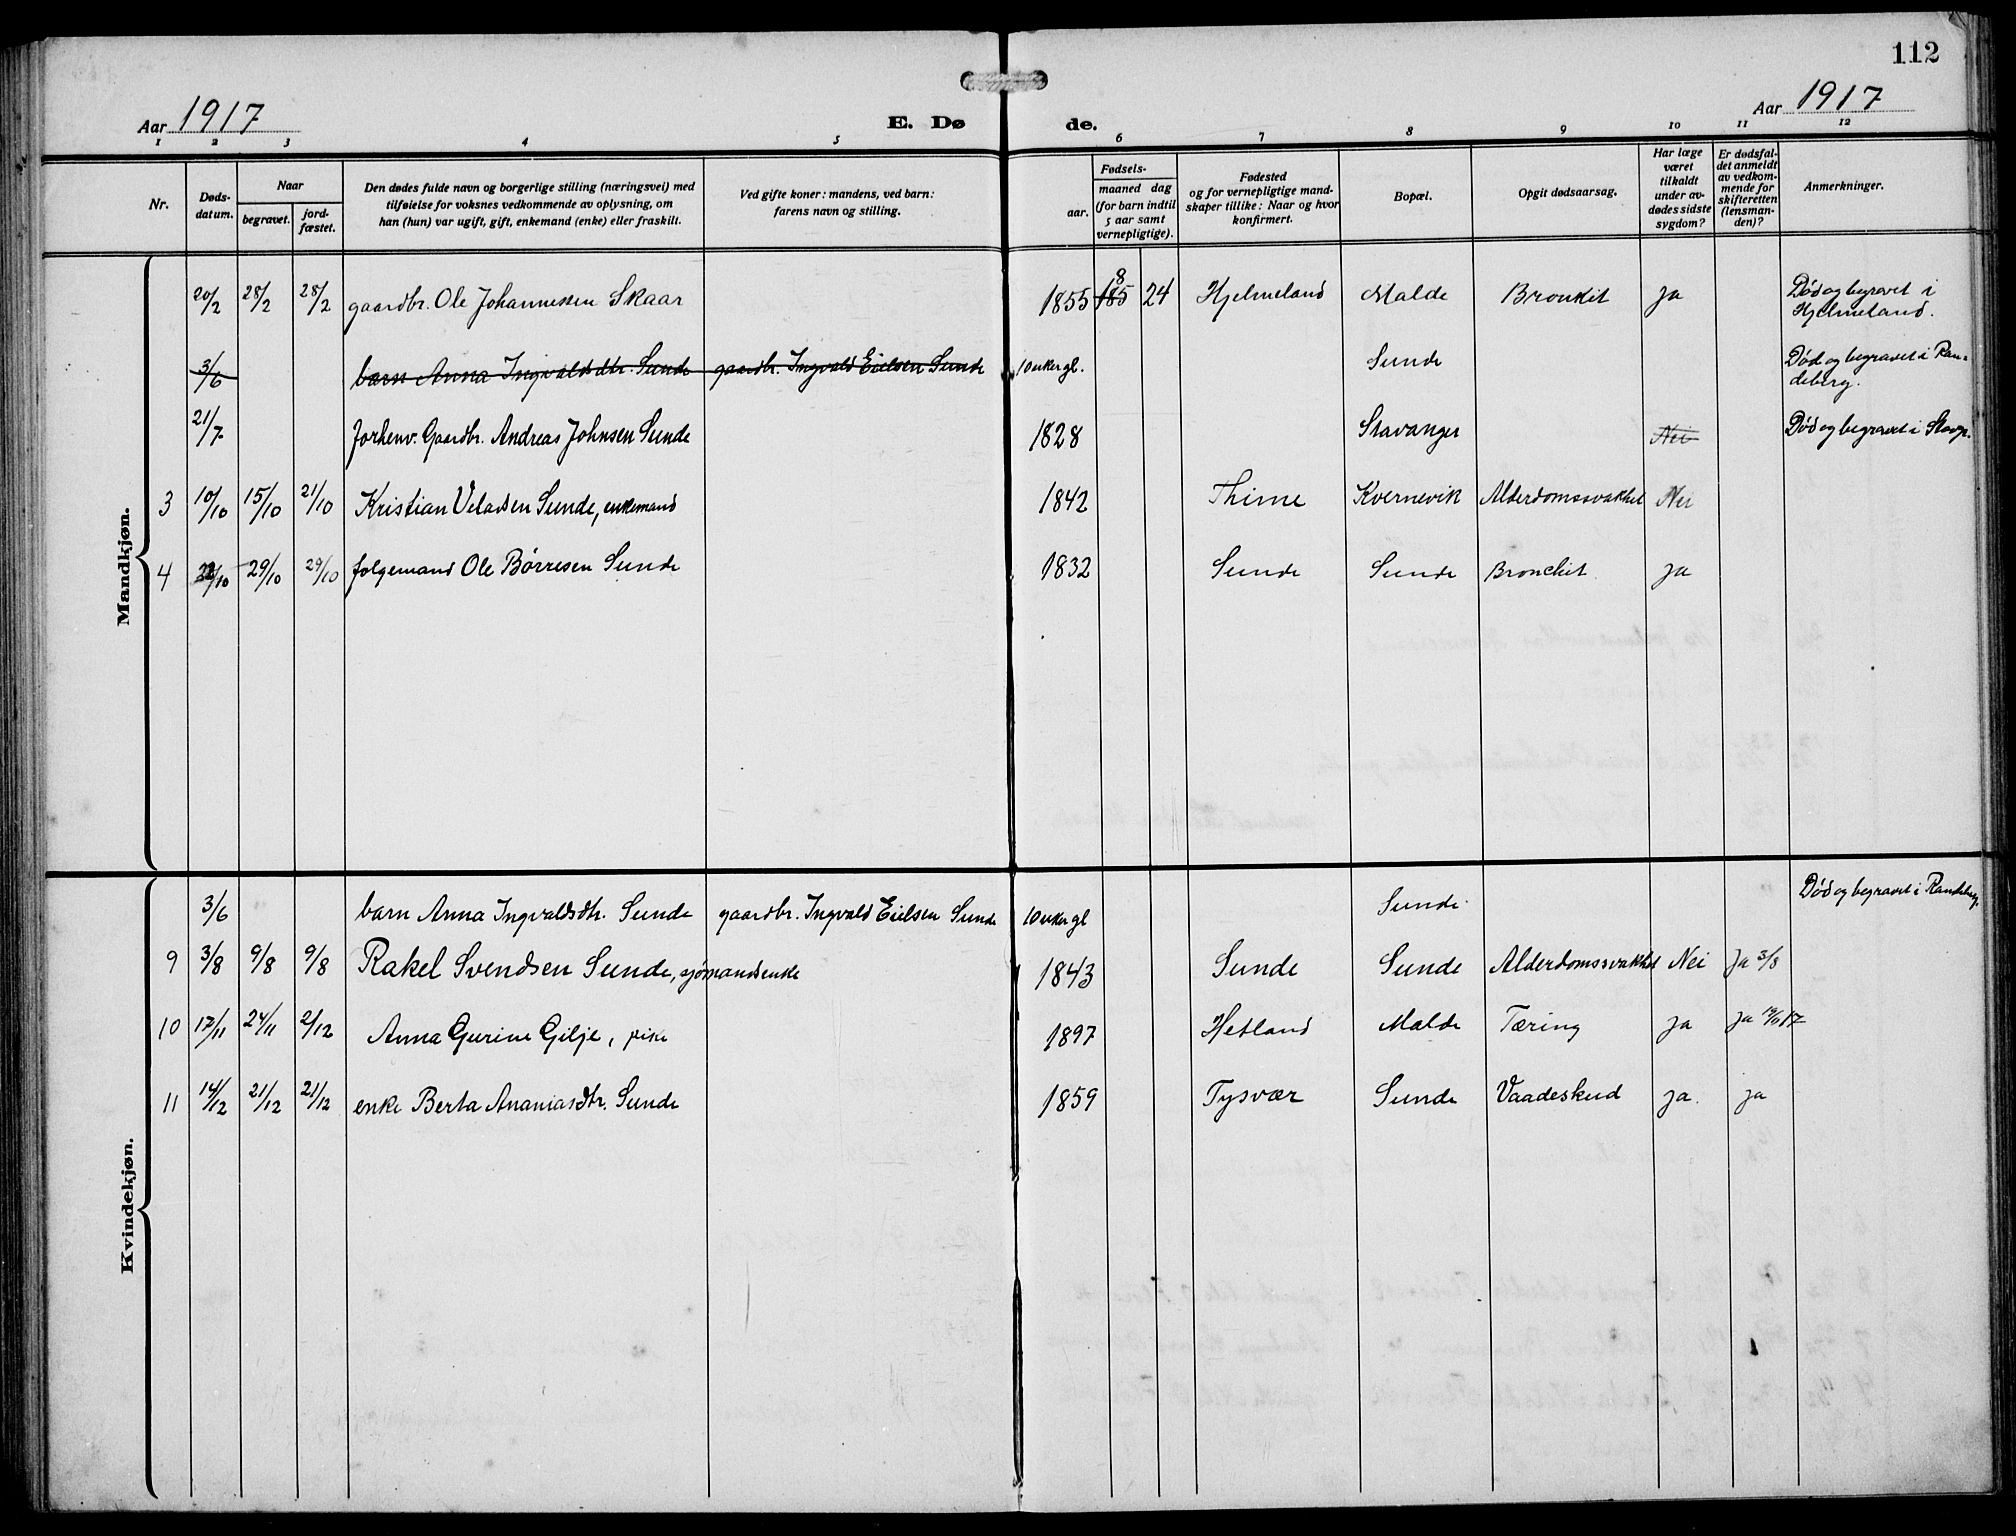 112
Aar 1917
E. Dø
de.
Aar 1917
1 2 3 4 5 6 7 8 9 10 11 12
Nr.
Døds-
datum.
Naar
begravet.
jord-
fæstet.
Den dødes fulde navn og borgerlige stilling (næringsvei) med
tilføielse for voksnes vedkommende av oplysning, om
han (hun) var ugift, gift, enkemand (enke) eller fraskilt.
Ved gifte koner: mandens, ved barn:
farens navn og stilling.
Fødsels-
aar.
maaned dag
(for barn indtil
5 aar samt
vernepligtige).
Fødested
og for vernepligtige mand-
skaper tillike: Naar og hvor
konfirmert.
Bopæl.
Opgit dødsaarsag.
Har læge
været
tilkaldt
under av-
dødes sidste
sygdom?
Er dødsfal-
det anmeldt
av vedkom-
mende for
skifteretten
(lensman-
den)?
Anmerkninger.
Mandkjøn.
20/2 28/2 28/2 gaardbr. Ole Johannessen Skaar 1855 185 8 24 Hjelmeland Malde Bronkit ja Død og begravet i
Hjelmeland.
3/6 barn Anna Ingvaldsdtr. Sunde gaardbr. Ingvald Eielsen Sunde 10 uker gl. Sunde Død og begravet i Ran-
deberg.
21/7 forhenv. Gaardbr. Andreas Johnsen Sunde 1828 Stavanger Nei Død og begravet i Stavgr.
3 10/10 15/10 21/10 Kristian Veladsen Sunde, enkemand 1842 Thime Kvernevik Alderdomssvakhet Nei
4 /10 29/10 29/10 følgemand Ole Børresen Sunde 1832 Sunde Sunde Bronchit ja
Kvindekjøn.
3/6 barn Anna Ingvaldsdtr. Sunde gaardbr. Ingvald Eielsen Sunde 10 uker gl Sunde Død og begravet i Randeberg.
9 3/8 9/8 9/8 Rakel Svendsen Sunde, sjømandsenke 1843 Sunde Sunde Alderdomssvakhet Nei Ja 3/8
10 17/11 24/11 2/12 Anna Gurine Gilje, pike 1897 Hetland Malde Tæring ja ja 17
11 14/12 21/12 21/12 enke Berta Ananiasdtr. Sunde 1859 Tysvær Sunde Vaadeskud ja. ja